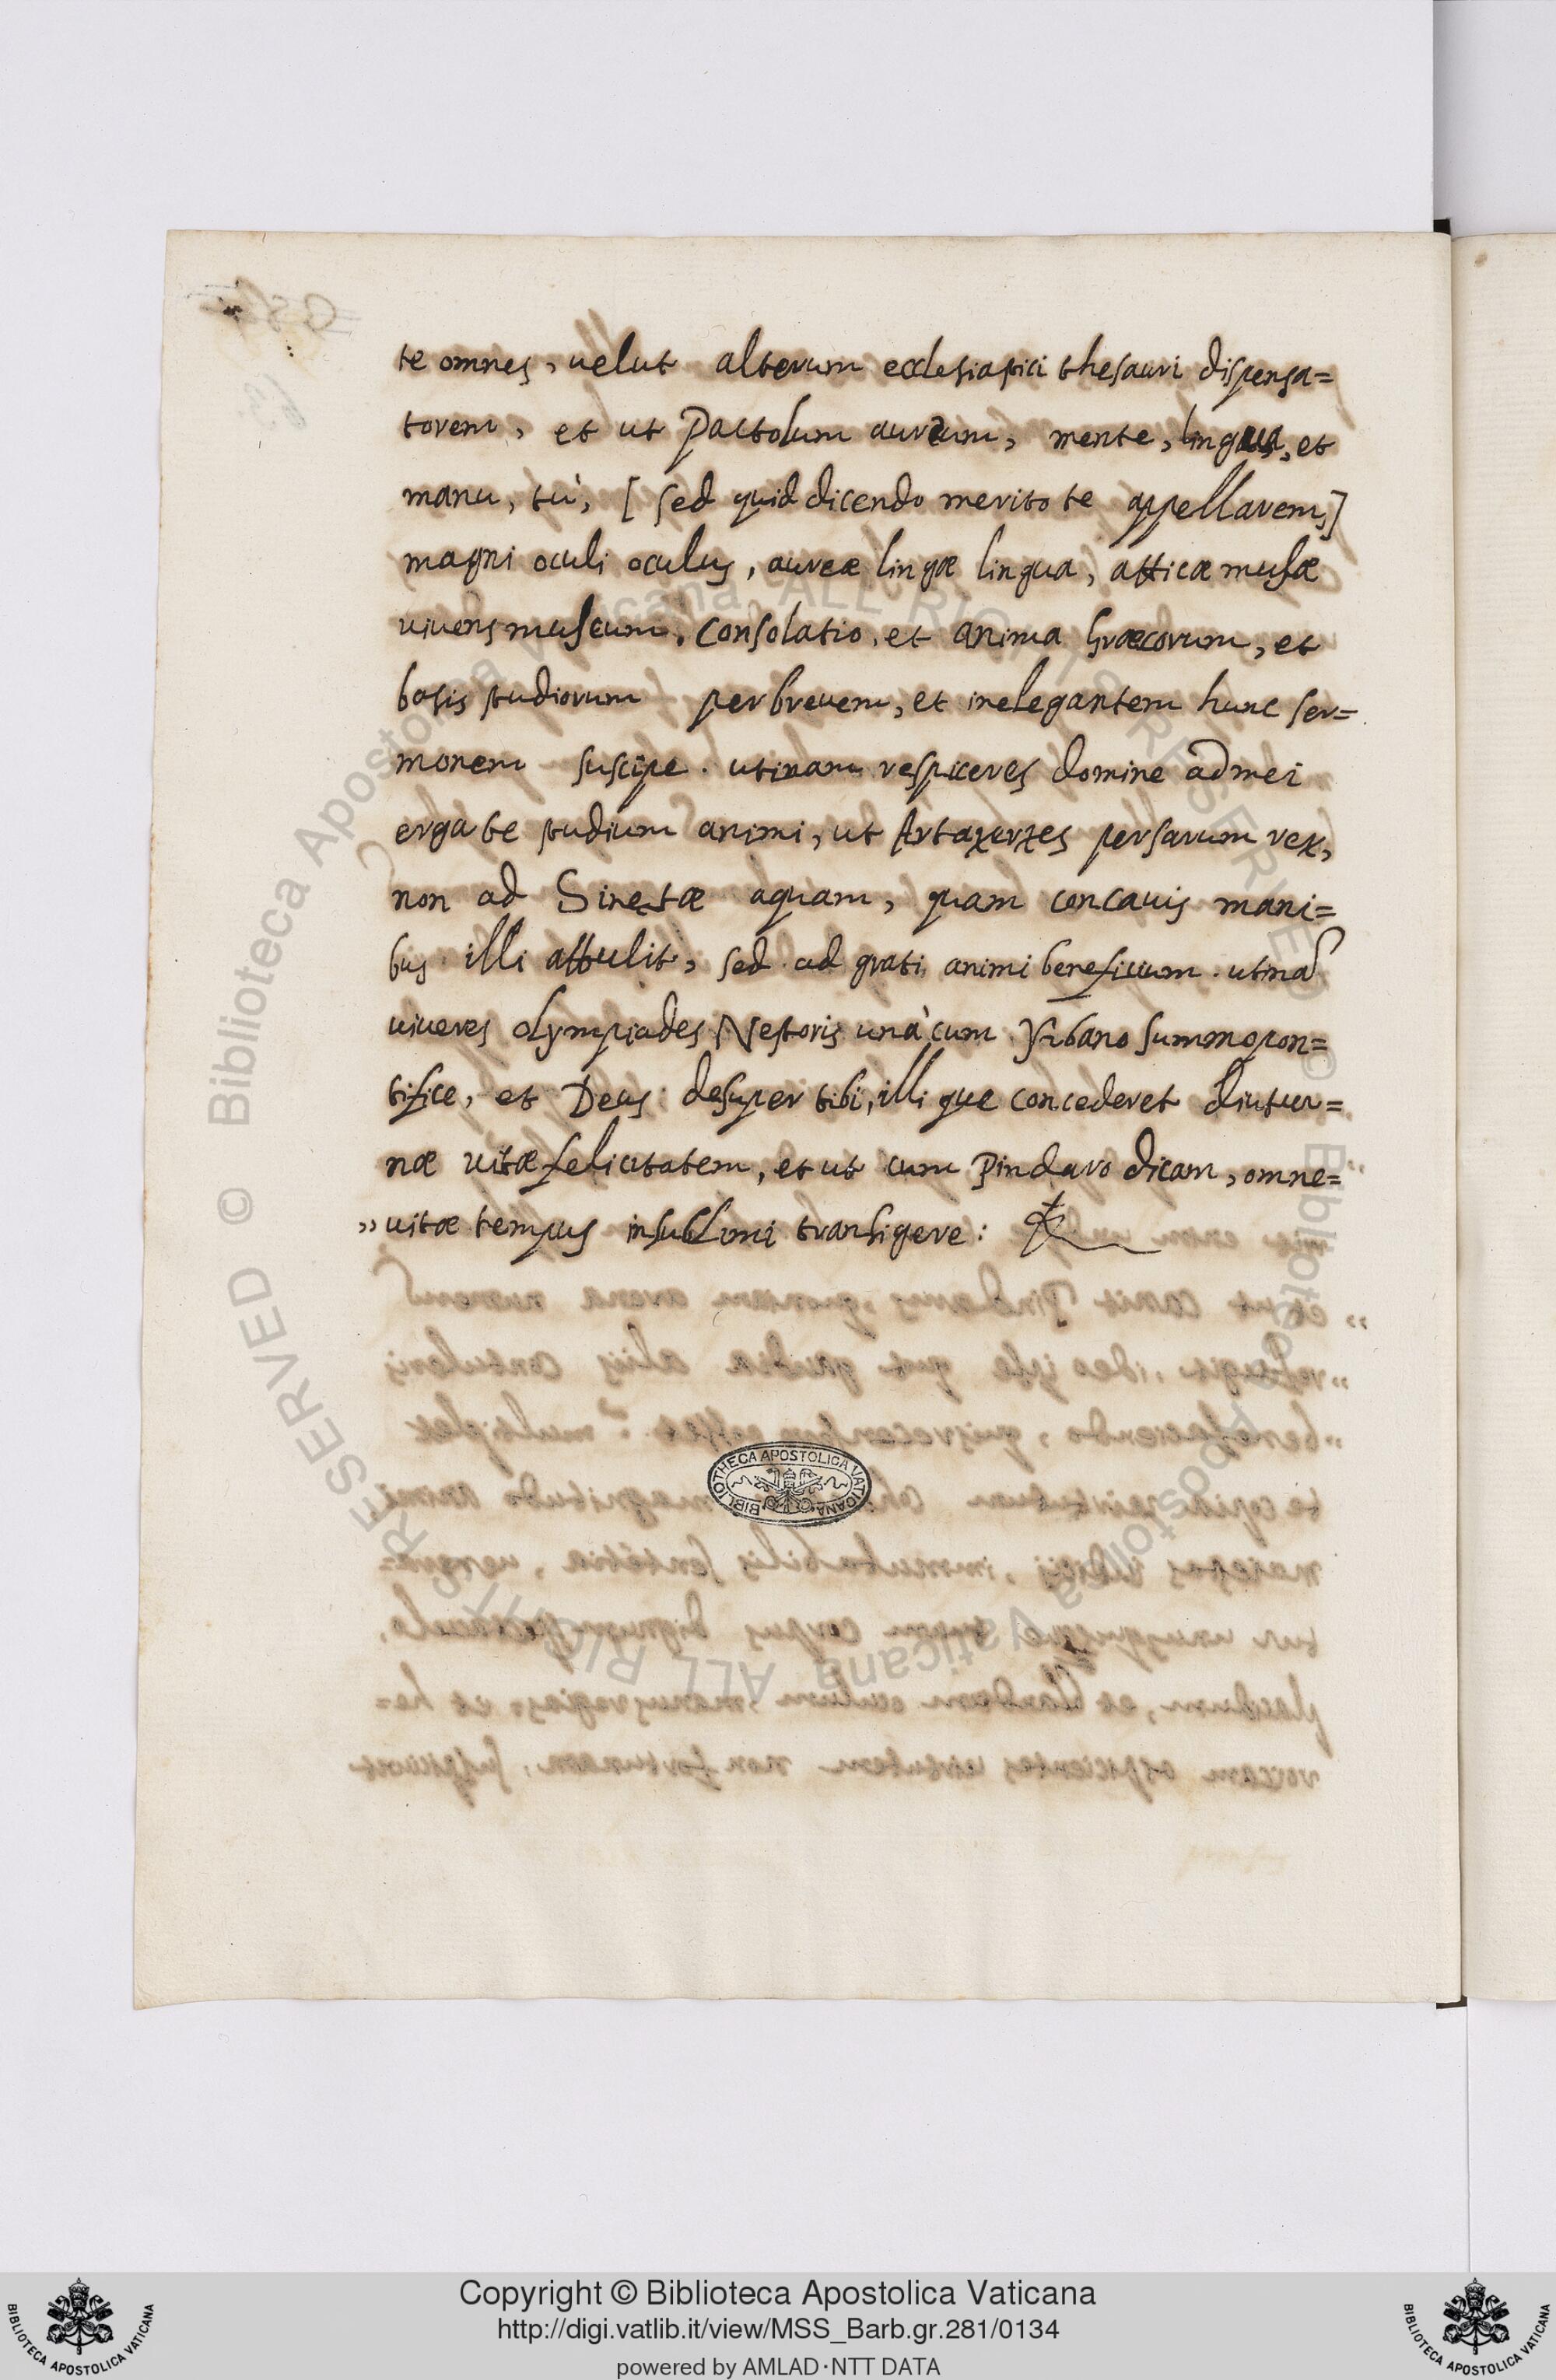 te omnes, uelut alterum ecclesiastici thesauri dispensa=
torem, et ut Pactolum aureum, mente, lingua, et
manu, tù, [ sed quid dicendo merito te appellarem,]
magni oculi oculus, aureæ lingæ lingua, atticæ musæ
uiuens museum. Consolatio, et anima Græcorum, et
basis studiorum perbreuem, et inelegantem hunc ser=
monem suscipe. utinam respiceres domine ad mei
erga te studium animi, ut Artaxerxes persarum rex,
non ad Sinetæ aquam, quam concauis mani=
bus illi attulit, sed ad grati animi beneficium. utinã
uiueres Olympiades Nestoris unà cum Vrbano summo pon=
tifice, et Deus desuper tibi, illi que concederet diutur=
næ uitæ felicitatem, et ut cum Pindaro dicam, omne=
,, uitæ tempus in sublimi transigere:
BIBLIOTHECA APOSTOLICA VATICANA
© Biblioteca Apostolica Vaticana ALL RIGHTS RESERVED
© Biblioteca Apostolica Vaticana ALL RIGHTS RESERVED
Copyright © Biblioteca Apostolica Vaticana
http://digi.vatlib.it/view/MSS_Barb.gr.281/0134
powered by AMLAD·NTT DATA
BIBLIOTECA APOSTOLICA VATICANA
BIBLIOTECA APOSTOLICA VATICANA